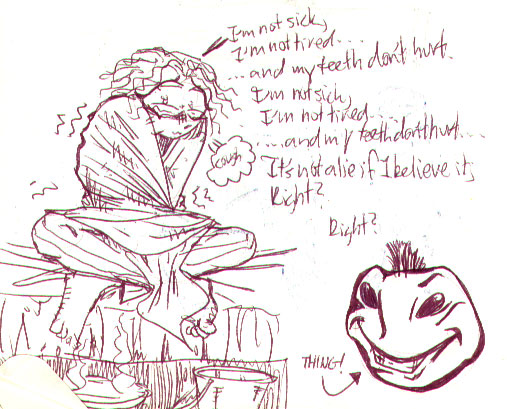 I'm not sick,
I'm not tired....
...and my teeth don't hurt.
I'm not sick,
I'm not tired....
....and my teeth don't hurt....
It's not a lie if I believe it,
Right?
Right?
cough
THING!